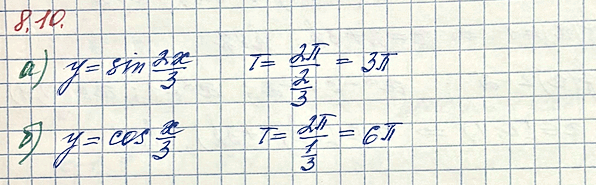 8.10.
а) y = sin 2x/3 T = 2π/(2/3) = 3π
б) y = cos x/3 T = 2π/(1/3) = 6π